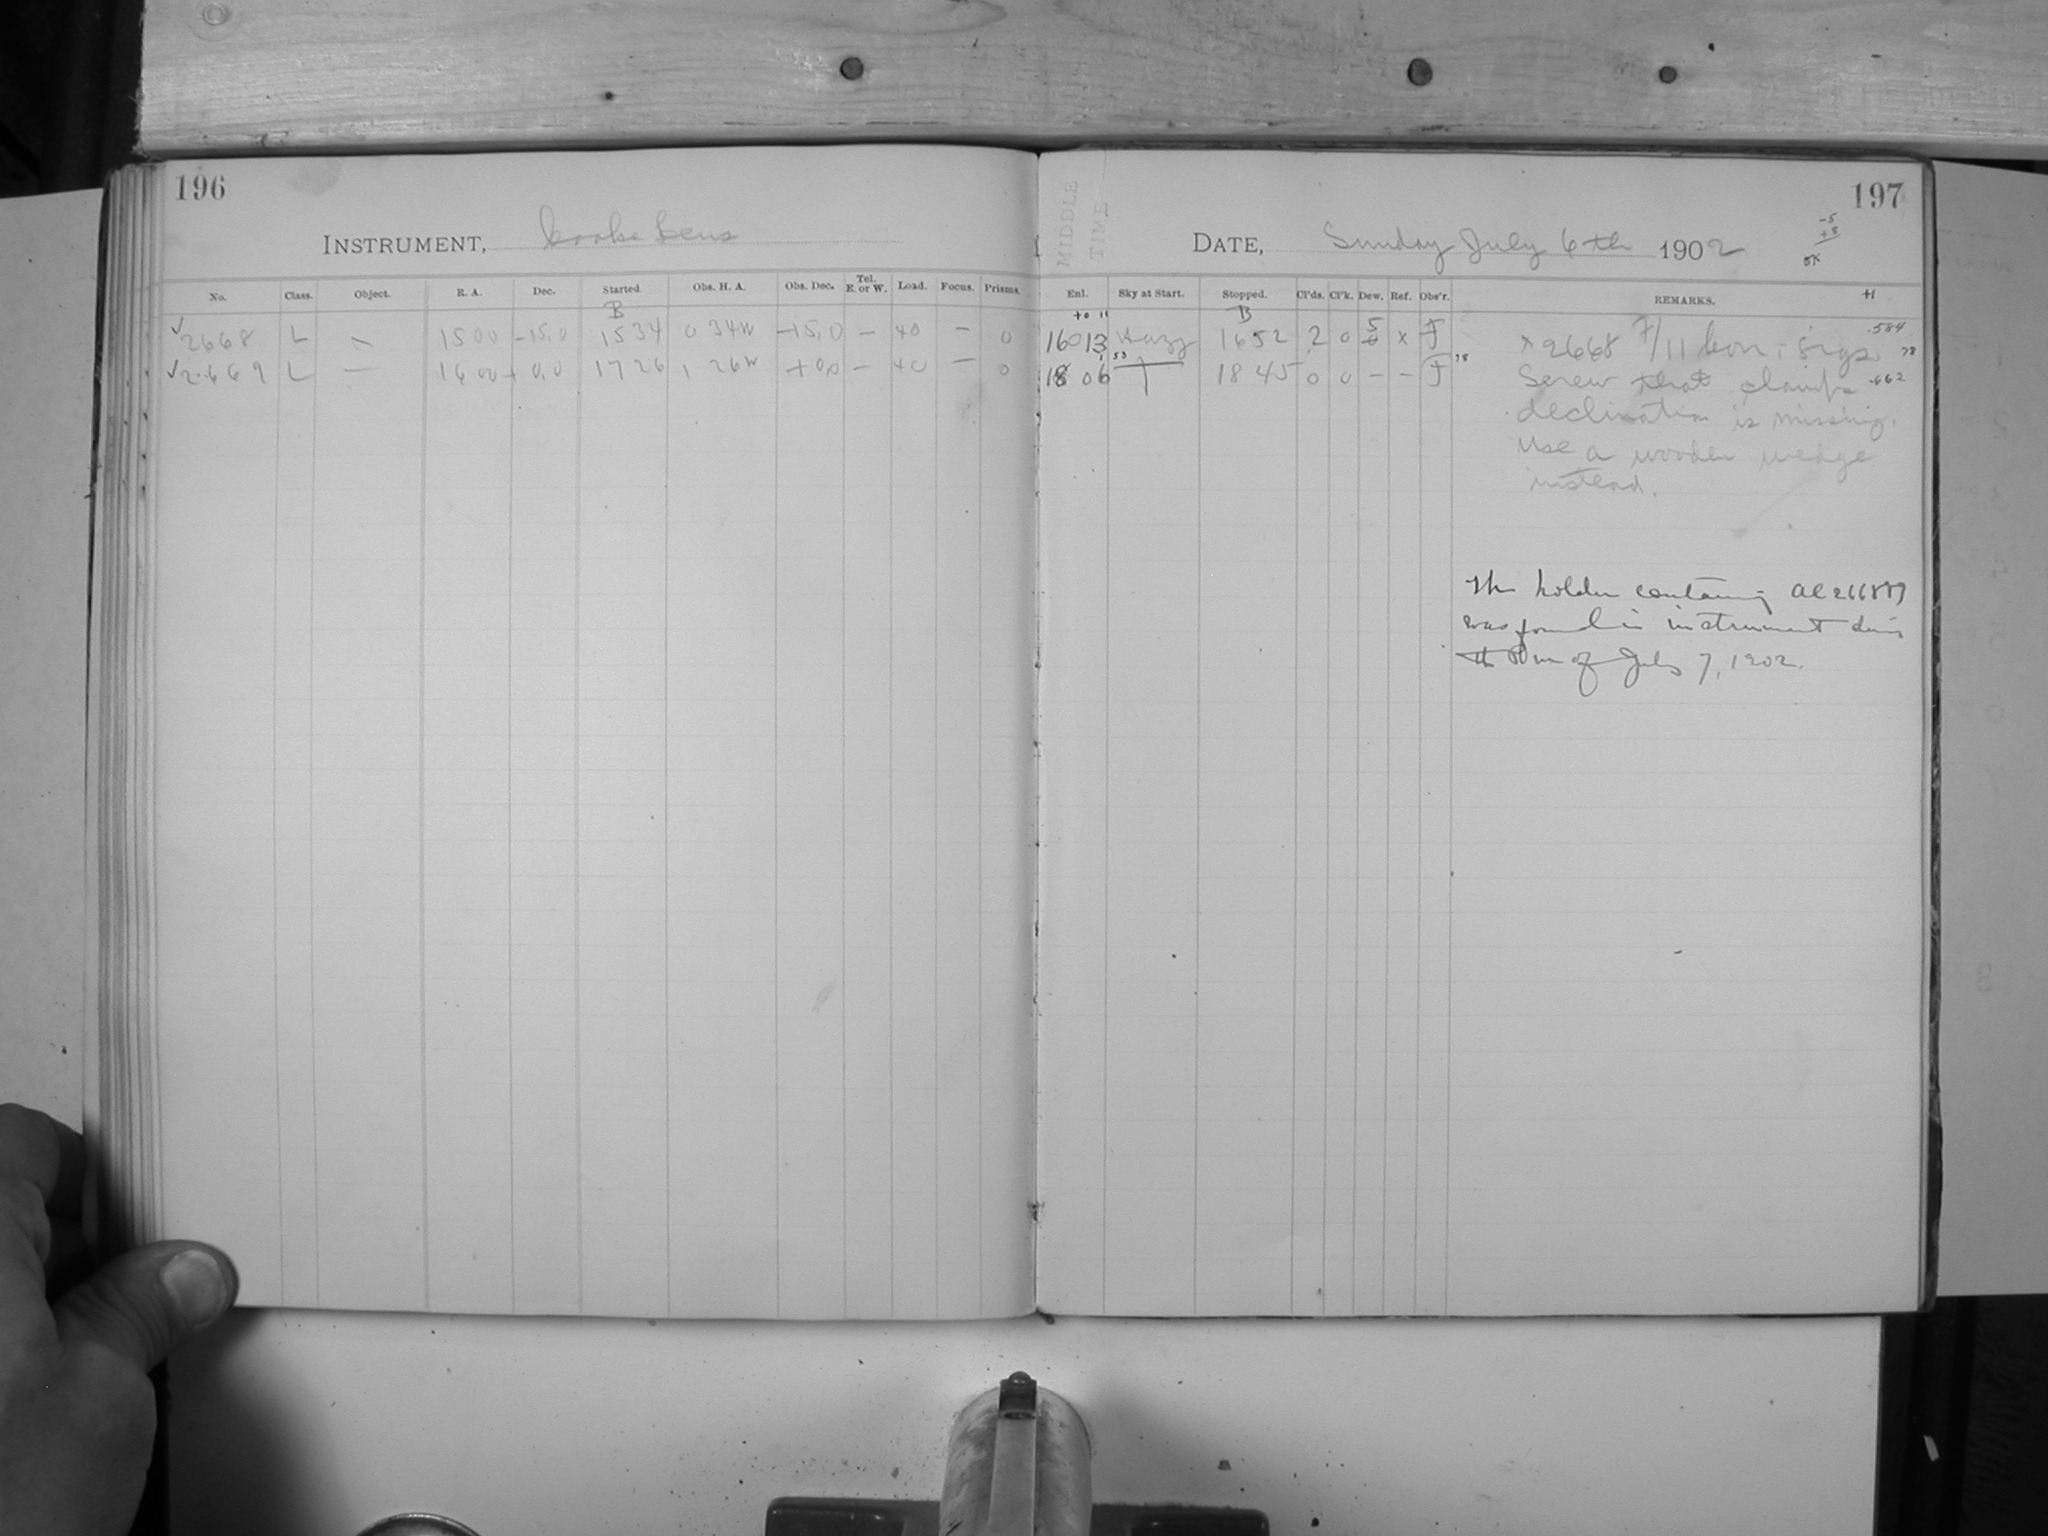 196
INSTRUMENT, Cooke Lens
No. Class. Object. R. A. Dec. Started. Obs. H. A. Obs. Dec. Tel. E. or W. Load. Focus. Prisms.
B
✓ 2668 L — 15 00 -15.0 15 34 0 34W -15.0 — 40 — 0
✓ 2669 L — 16 00 + 0.0 17 26 1 26W +0.0 — 40 — 0
197
MIDDLE TIME
DATE, Sunday July 6th 1902
-5
+8
OK
Enl. Sky at Start. Stopped. Cl'ds. Cl'k. Dew. Ref. Obs'r. REMARKS. +1
+0 11 B
16 13 Hazy 1652 2 0 5 x J x 2668 F/11 .584
18 06 53 18 45 0 0 — — J 18 Screw that clamps .662 78
declination is missing.
Use a wooden wedge
instead.
The holder containing
was found in instrument
of July 7, 1902.